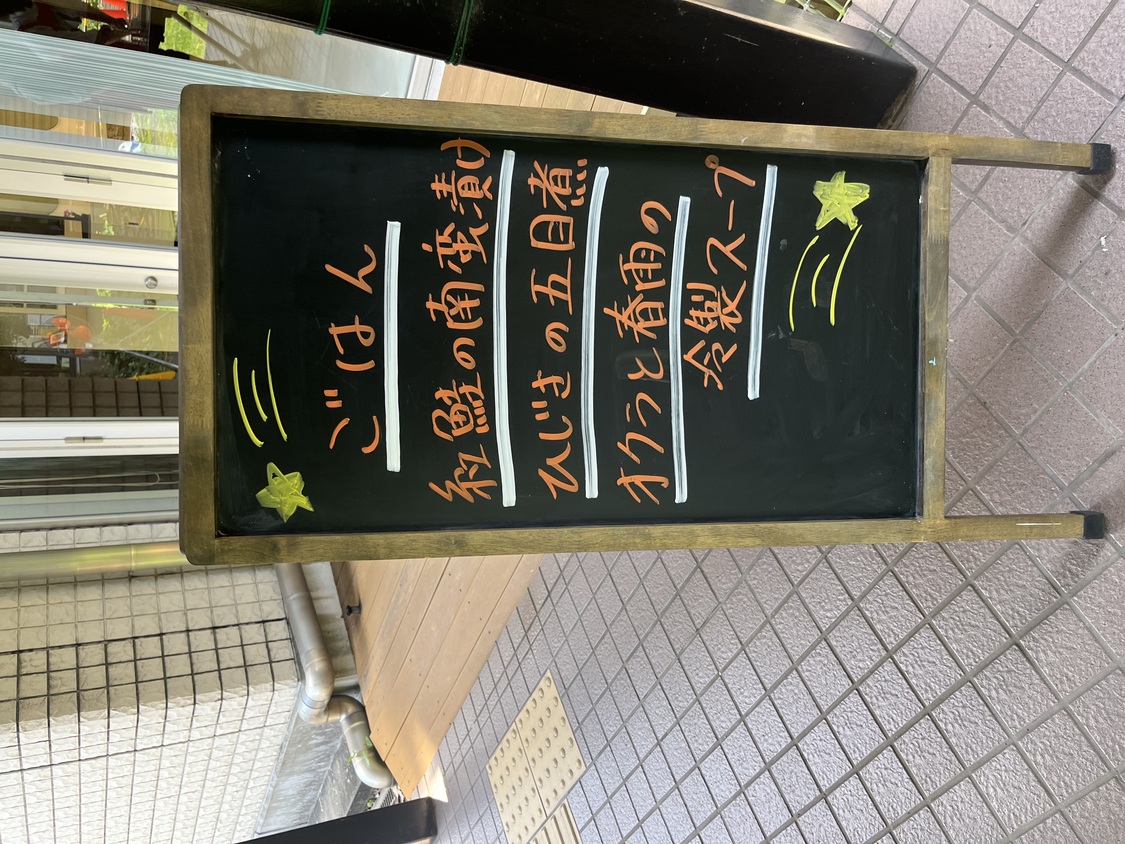 ごはん
紅鮭の南蛮漬け
ひじきの五目煮
オクラと春雨の
冷製スープ